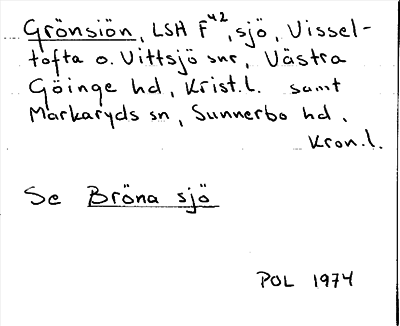 Grönsiön, LSH F42, sjö, Vissel-
tofta o. Vittsjö snr, Västra
Göinge hd, Krist.l. samt
Markaryds sn, Sunnerbo hd,
Kron.l.
Se Bröna sjö
POL 1974